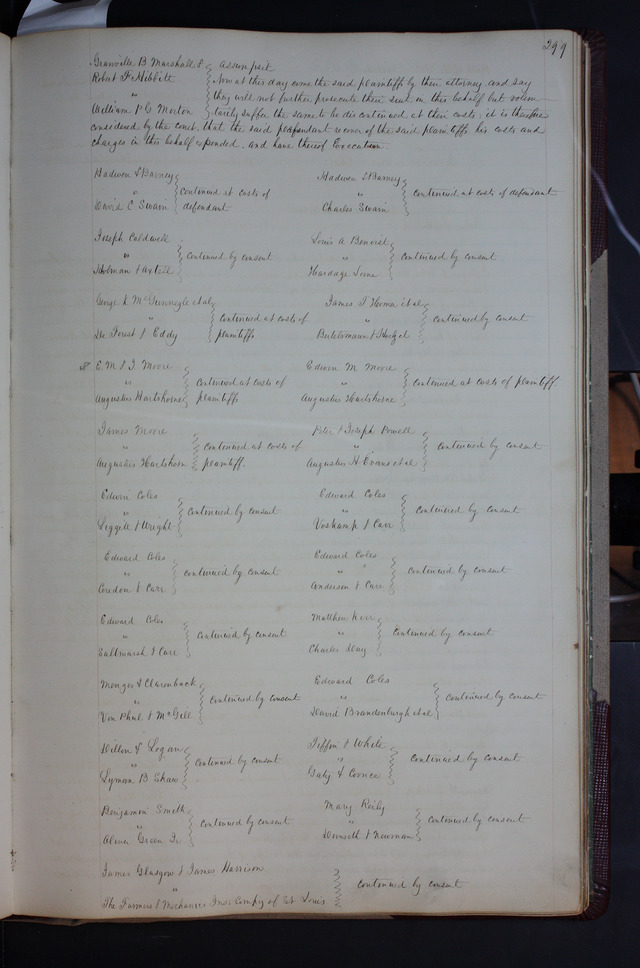 299
Granville B. Marshall &
Robert F. Hibbitt
"
William P. C. Morton
Assumpsit
Now at this day come the said plaintiffs by their attorney and say
they will not further prosecute their suit in this behalf but volun-
tarily suffer the same to be discontinued at their costs, it is therefore
considered by the court, that the said defendant recover of the said plaintiffs his costs and
charges in this behalf expended, and have thereof Execution.
Hadwen & Barney
"
David C Swain
continued at costs of
defendant
Hadwen & Barney
"
Charles Swain
continued at costs of defendant
Joseph Caldwell
"
Holman &
continued by consent
Louis A Benoist
"
Hardage Lane
continued by consent
George K McGunnigle et al
"
De Forest & Eddy
continued at costs of
plaintiffs
James et al
"
continued by consent
E. M. & J. Moore
"
Augustus Hartshorne
continued at costs of
plaintiffs
Edwin M Moore
"
Augustus Hartshorne
continued at costs of plaintiff
James Moore
"
Augustus Hartshorn
continued at costs of
plaintiff.
Peter & Joseph Powell
"
Augustus H Evans et al
continued by consent
Edwin Coles
"
Liggitt & Wright
continued by consent
Edward Coles
"
Voskamp & Carr
continued by consent
Edward Coles
"
Gordon & Carr
continued by consent
Edward Coles
"
Anderson & Carr
continued by consent
Edward Coles
"
Saltmarsh & Carr
continued by consent
Matthew Kerr
"
Charles Hay
continued by consent
Menges & Clarenback
"
Von Phul & McGill
continued by consent
Edward Coles
"
David Brandenburgh et al
continued by consent
Dillon & Logan
"
Lyman B. Shaw
continued by consent
Tiffin & White
"
Gaty & Coonce
continued by consent
Benjamin Smith
"
Oliver Green Jr.
continued by consent
Mary Reily
"
& Newman
continued by consent
James Glasgow & James Harrison
"
The Farmers & Mechanics Ins. Compy of St Louis
continued by consent